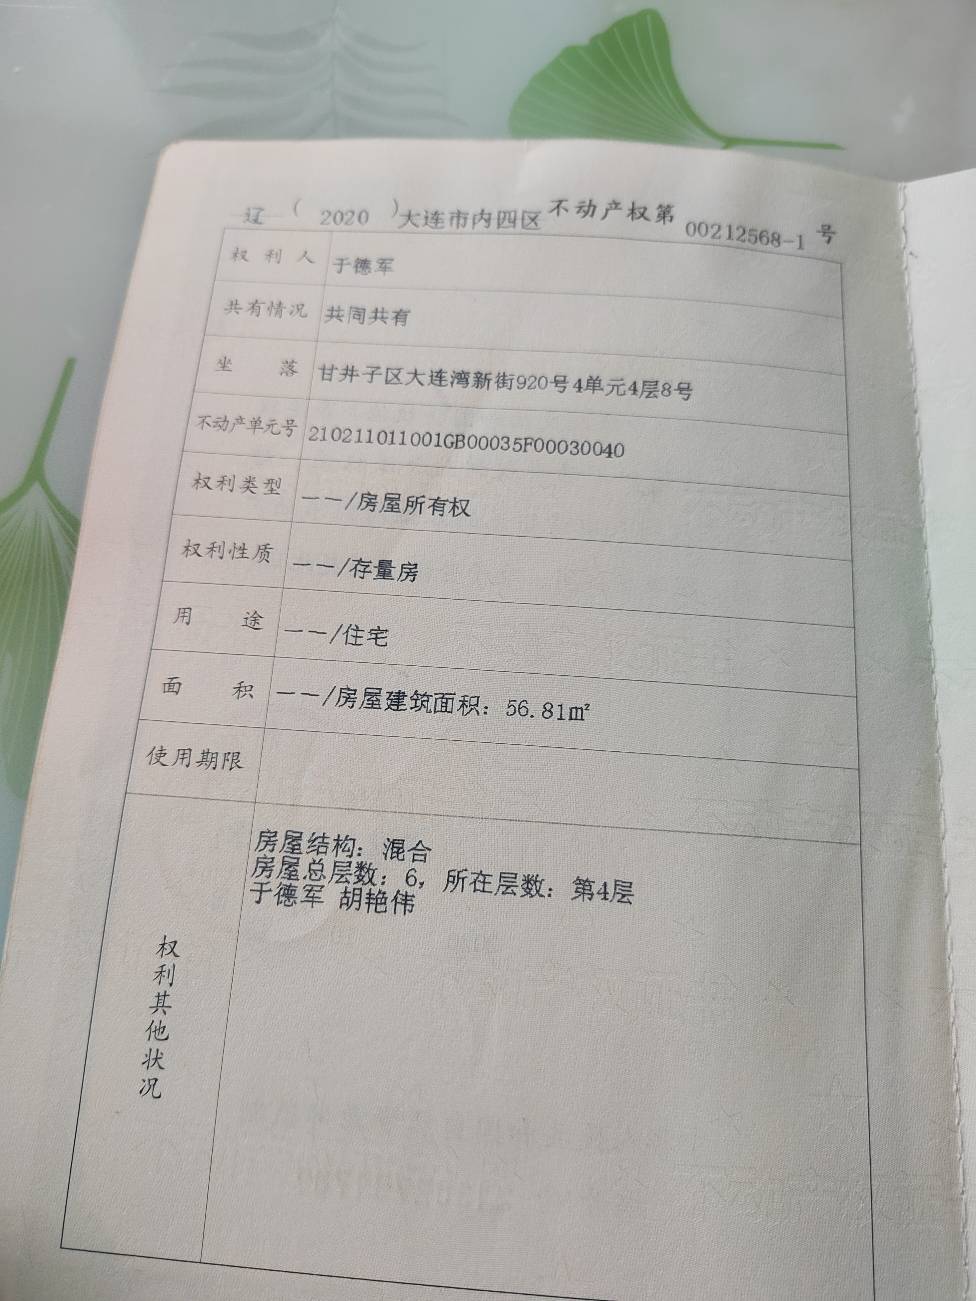 辽（2020）大连市内四区不动产权第00212568-1号
权利人 于德军
共有情况 共同共有
坐落 甘井子区大连湾新街920号4单元4层8号
不动产单元号 210211011001GB00035F00030040
权利类型 ——/房屋所有权
权利性质 ——/存量房
用途 ——/住宅
面积 ——/房屋建筑面积：56.81㎡
使用期限
权利其他状况
房屋结构：混合
房屋总层数：6，所在层数：第4层
于德军 胡艳伟